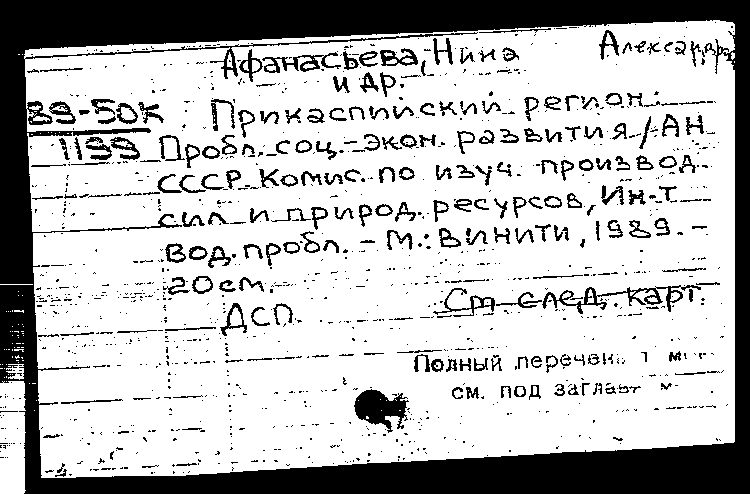 Афанасьева, Нина Александров
и др.
89-50к Прикаспийский регион:
1199 Пробл. соц.-экон. развития / АН
СССР. Комис. по изуч. производ.
сил и природ. ресурсов, Ин-т
вод. пробл. – М.: ВИНИТИ, 1989. –
20 см.
ДСП. См. след. карт.
Полный перечень
см. под заглав